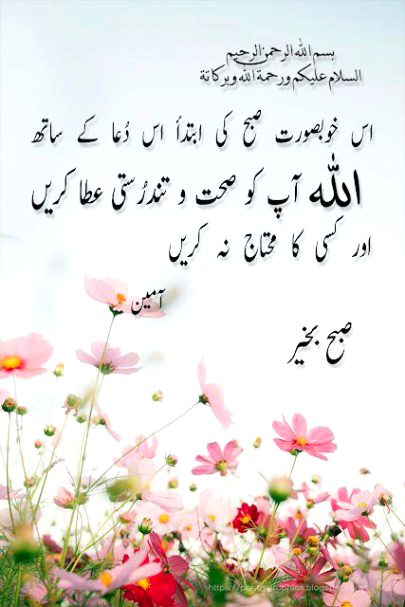 بسم الله الرحمن الرحیم
السلام علیکم ورحمة الله وبرکاتة
اس خوبصورت صبح کی ابتدأ اس دُعا کے ساتھ
اللہ آپ کو صحت و تندرُستی عطا کریں
اور کسی کا محتاج نہ کریں
آمین
صبح بخیر